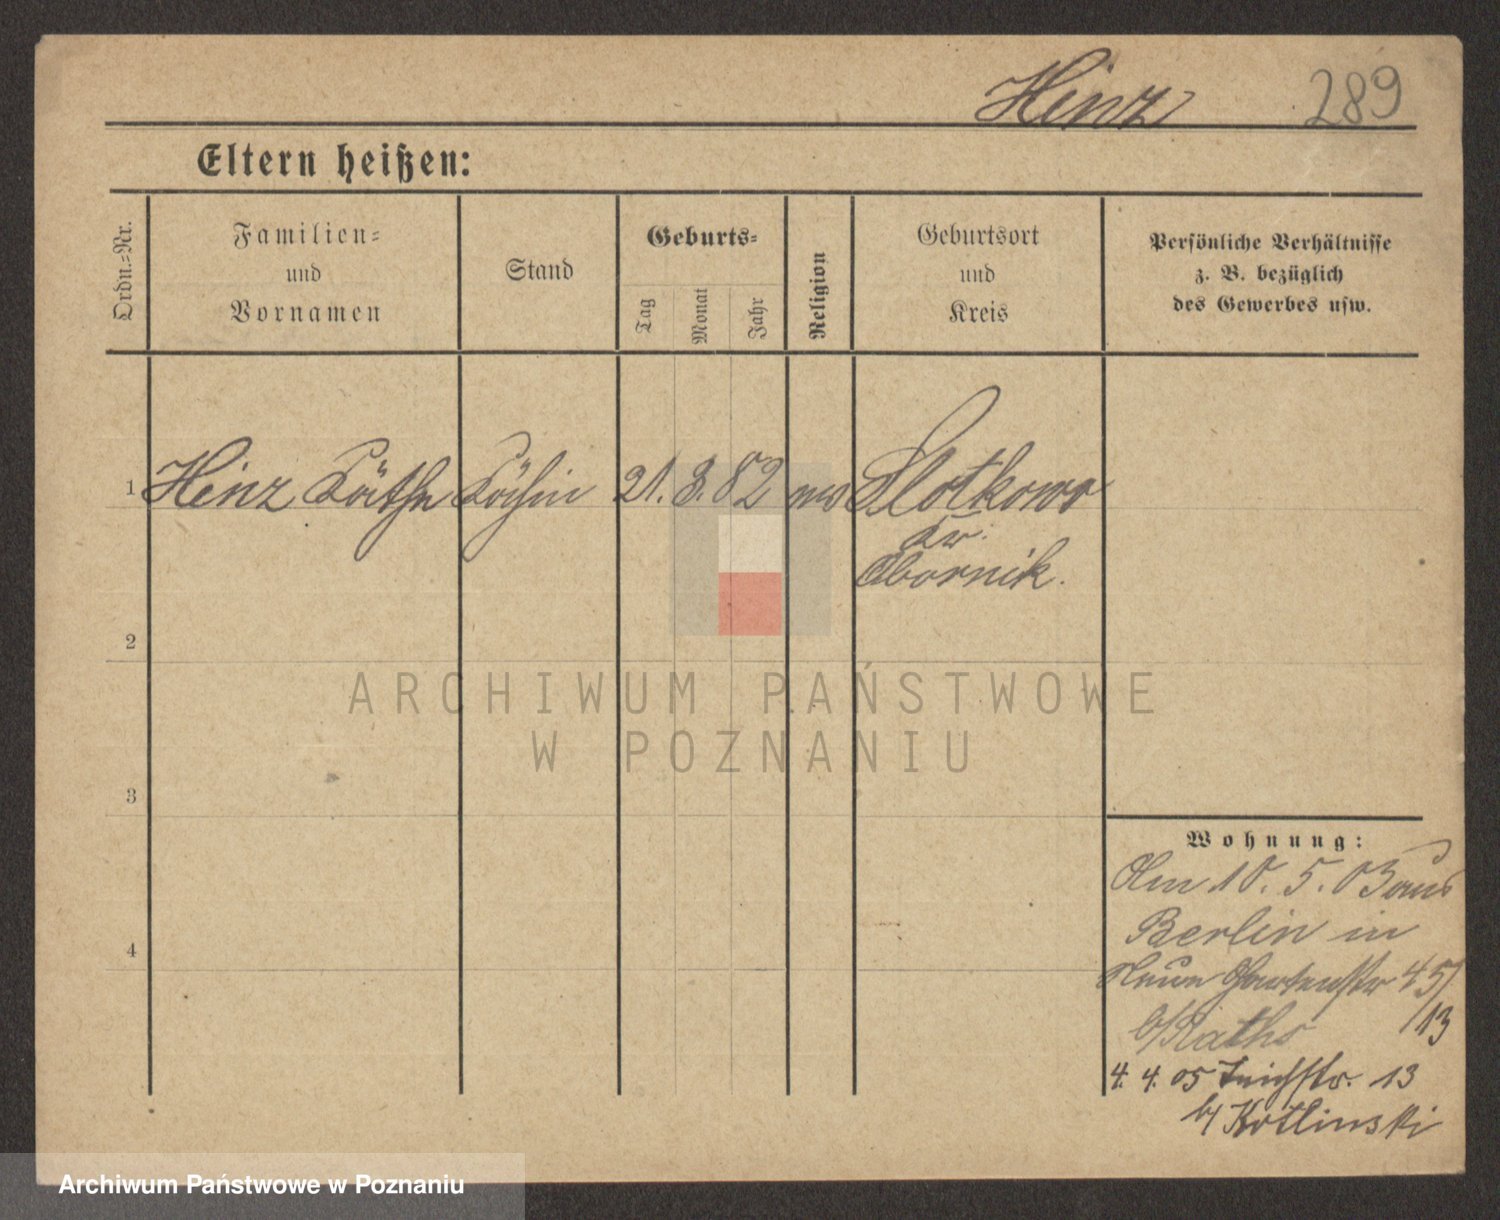 Hinz 289
Eltern heißen:
Ordn.-Nr.
Familien-
und
Vornamen
Stand
Geburts-
Tag
Monat
Jahr
Religion
Geburtsort
und
Kreis
Persönliche Verhältnisse
z. B. bezüglich
des Gewerbes usw.
1 Hinz Käthe Köchin 21. 8. 82 Slotkowo
Kr.
Obornik.
2
ARCHIWUM PAŃSTWOWE
W POZNANIU
3
4
Wohnung:
Am 10. 5. 03 aus
Berlin in
Neue Gartenstr 45/
b/Raths 13
4. 4. 05 Teichstr. 13
b/ Kotlinski
Archiwum Państwowe w Poznaniu